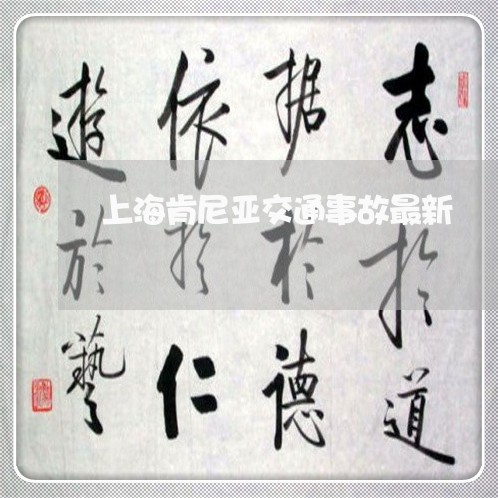 志於道
据於德
依於仁
遊於藝
上海肯尼亚交通事故最新